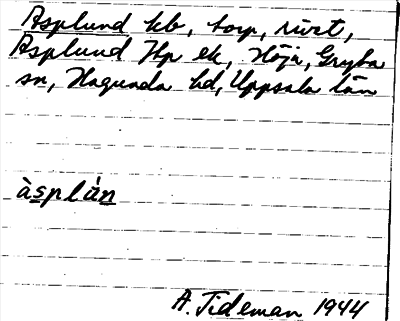 Asplund kb, torp, rivet,
Asplund Hp ek, Höja, Gryta
sn, Hagunda hd, Uppsala län
àsplán
A. Tideman 1944